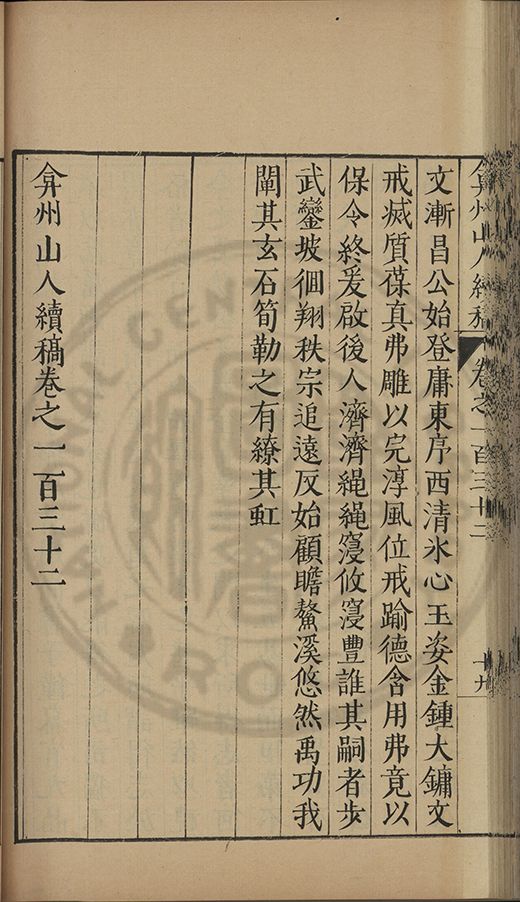 弇州山人續稿 卷之一百三十二 十九
文漸昌公始登庸東序西清氷心玉姿金鍾大鏞文
戒滅質葆真弗雕以完淳風位戒踰德含用弗竟以
保令終爰啟後人濟濟繩繩寖攸寖豊誰其嗣者步
武鑾坡徊翔秩宗追遠反始顧瞻鰲溪悠然禹功我
闡其玄石筍勒之有繚其虹
弇州山人續稿卷之一百三十二